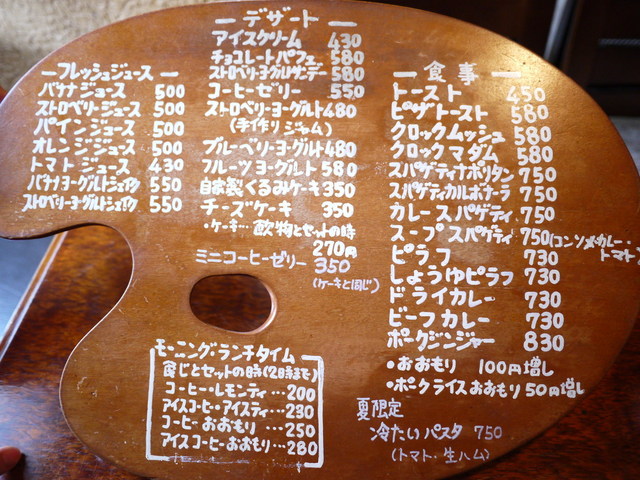 フレッシュジュース
バナナジュース 500
ストロベリージュース 500
パインジュース 500
オレンジジュース 500
トマトジュース 430
バナナヨーグルトジュース 550
ストロベリーヨーグルトジュース 550
デザート
アイスクリーム 430
チョコレートパフェ 580
ストロベリーヨーグルトサンデー 580
コーヒーゼリー 550
ストロベリーヨーグルト 480
(手作りジャム)
ブルーベリーヨーグルト 480
フルーツヨーグルト 580
自家製くるみケーキ 350
チーズケーキ 350
・ケーキ…飲物とセットの時
270円
ミニコーヒーゼリー 350
(ケーキと同じ)
食事
トースト 450
ピザトースト 580
クロックムッシュ 580
クロックマダム 580
スパゲティナポリタン 750
スパゲティカルボナーラ 750
カレースパゲティ 750
スープスパゲティ 750(コンソメ・カレー・
トマト)
ピラフ 730
しょうゆピラフ 730
ドライカレー 730
ビーフカレー 730
ポークジンジャー 830
・おおもり 100円増し
・ポークライスおおもり 50円増し
夏限定
冷たいパスタ 750
(トマト・生ハム)
モーニング・ランチタイム
食事とセットの時(2時まで)
コーヒー・レモンティ…200
アイスコーヒ・アイスティ…230
コーヒー おおもり…250
アイスコーヒーおおもり…280